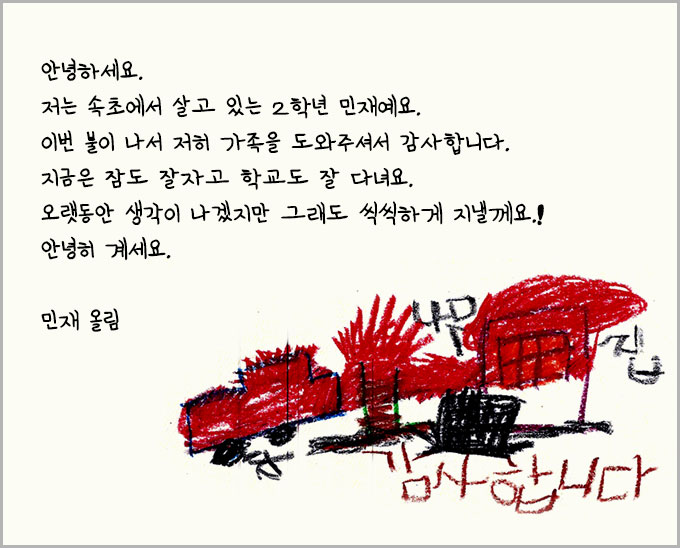 안녕하세요.
저는 속초에서 살고 있는 2학년 민재예요.
이번 불이 나서 저희 가족을 도와주셔서 감사합니다.
지금은 잠도 잘자고 학교도 잘 다녀요.
오랫동안 생각이 나겠지만 그래도 씩씩하게 지낼께요.!
안녕히 계세요.
민재 올림
나무
집
차
감사합니다